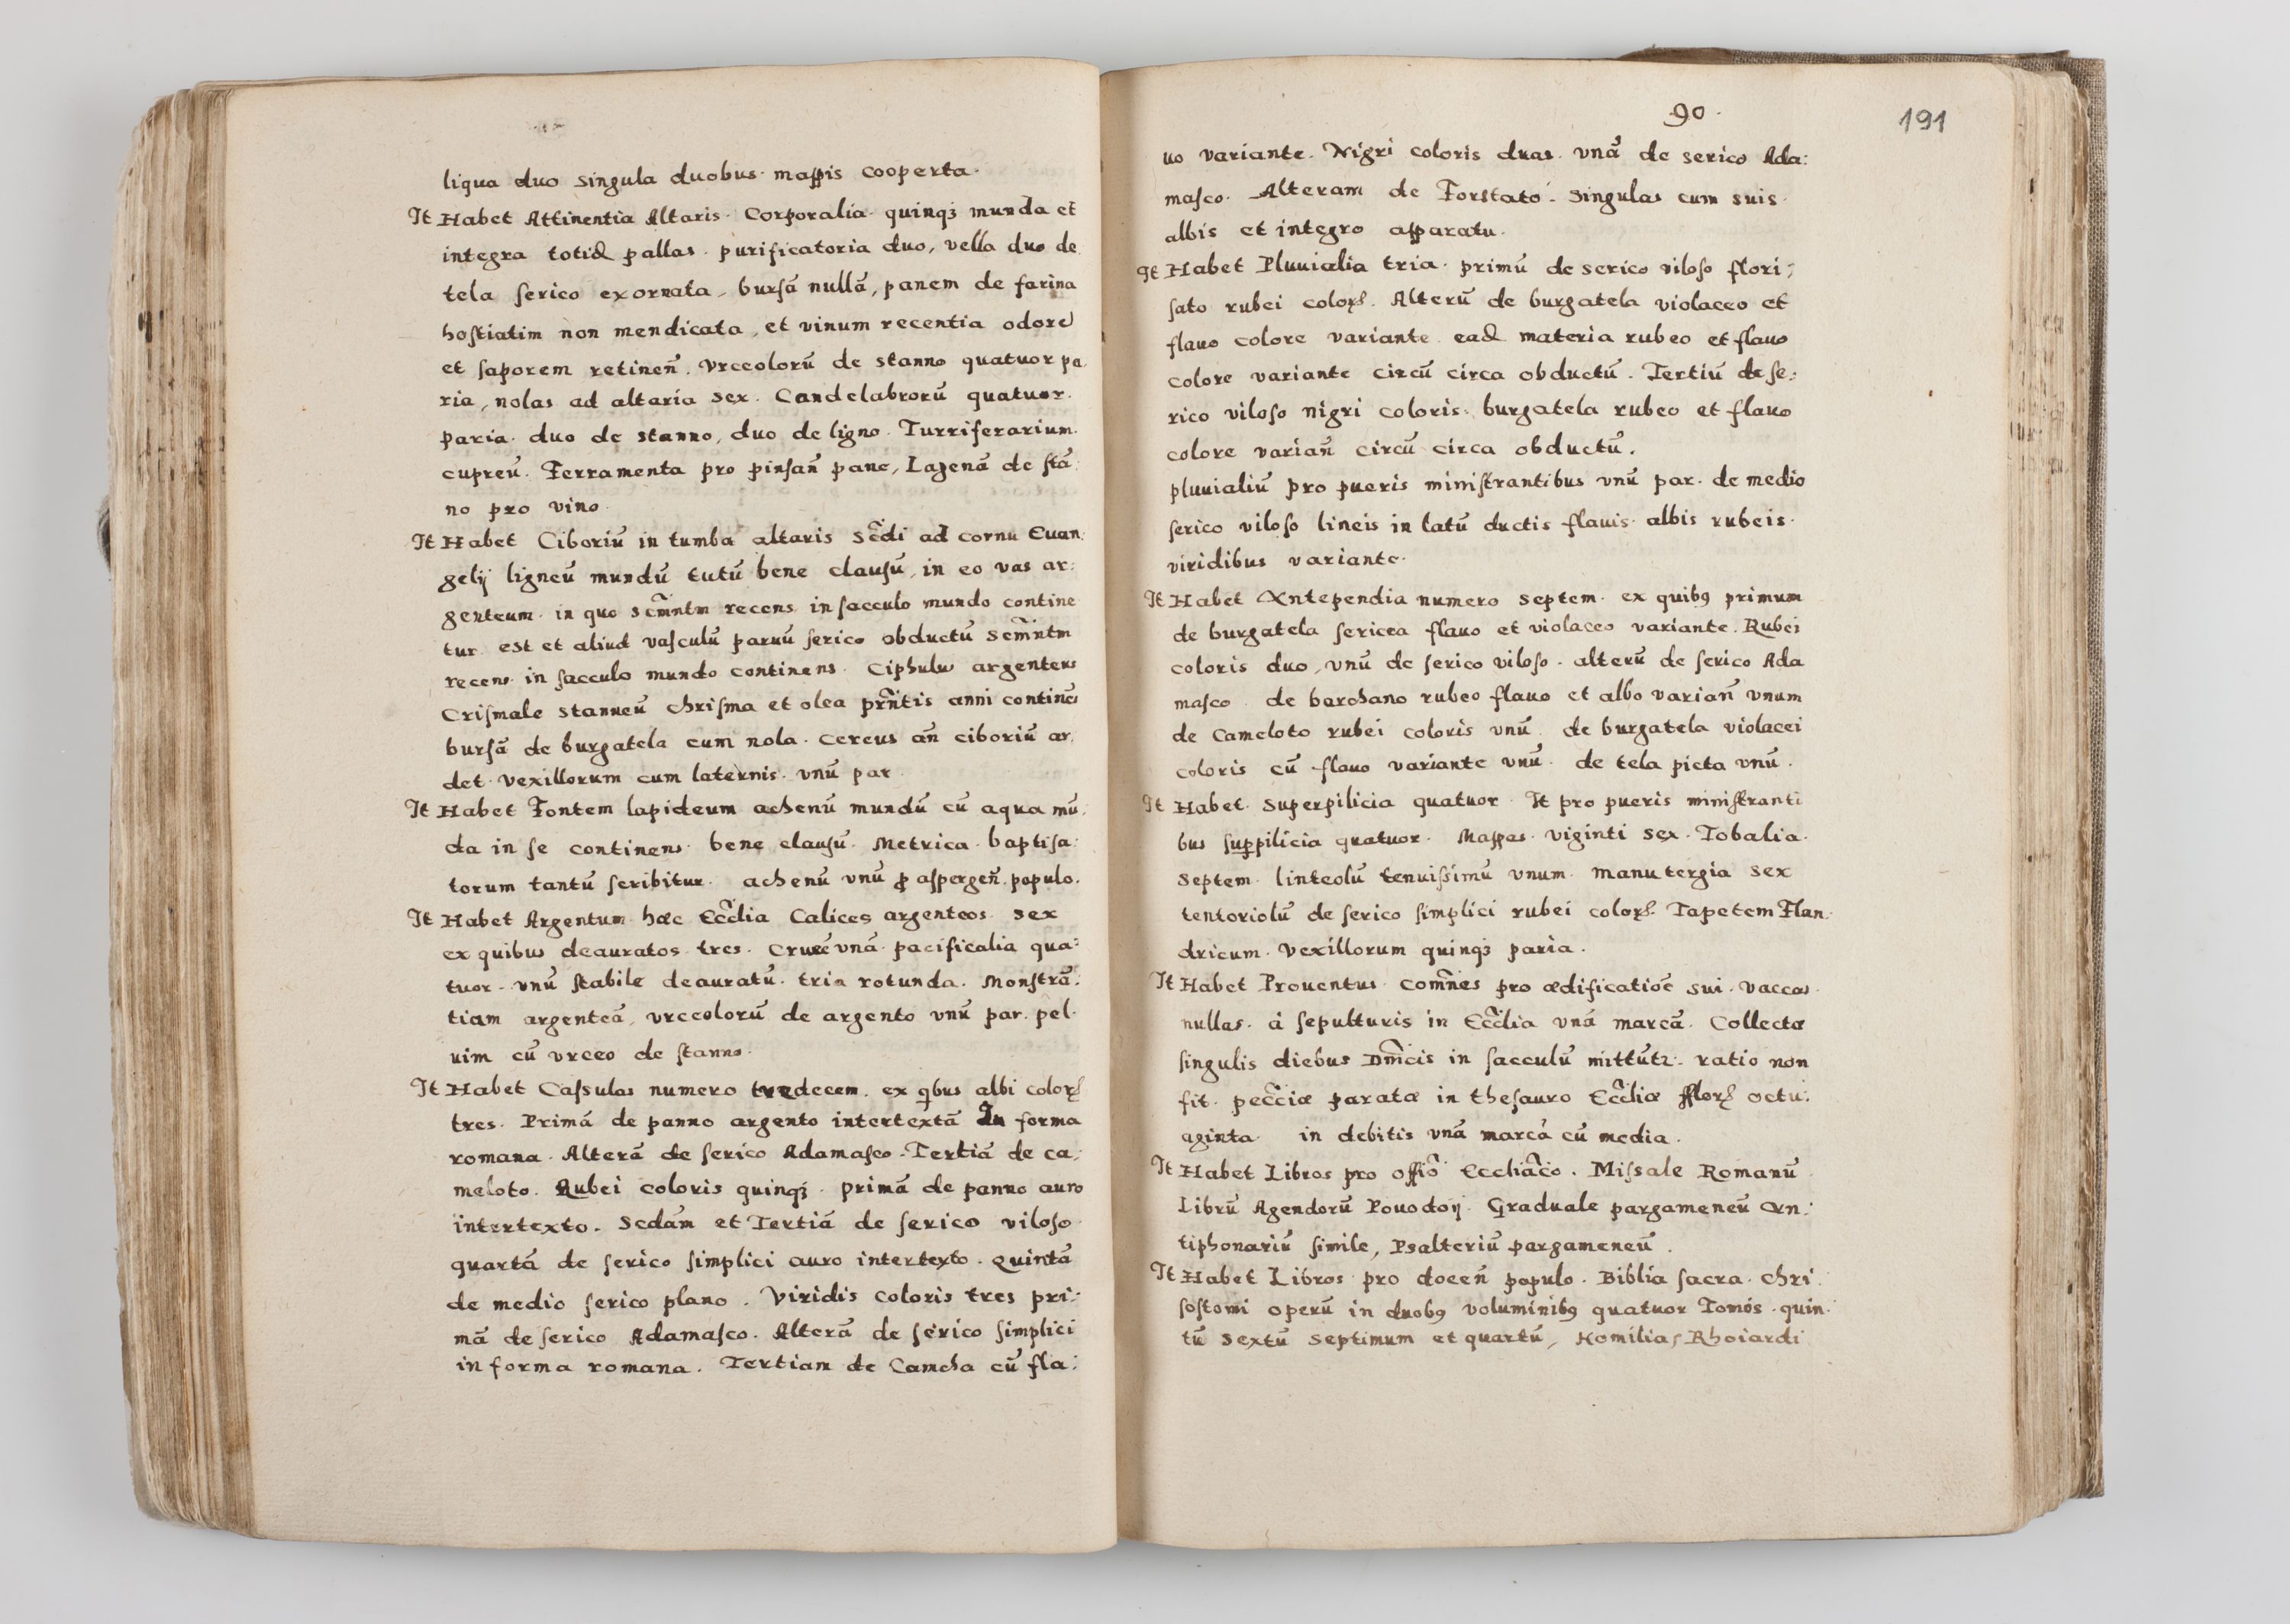 liqua duo singula duobus mappis cooperta.
It Habet Attinentia Altaris. Corporalia quinqȝ munda et
integra totid pallas. purificatoria duo, vella duo de
tela serico exornata, bursā nullā, panem de farina
hostiatim non mendicata, et vinum recentia odore
et saporem retineñ. Vrceolorū de stanno quatuor pa
ria, nolas ad altaria sex. Candelabrorū quatuor
paria. duo de stanno, duo de ligno. Turriferarium
cupreū. Ferramenta pro pinsañ pane, Lagenā de stā:
no pro vino.
It Habet Ciboriū in tumba altaris Scd̃i ad cornu Euan:
gelij ligneū mundū tutū bene clausū, in eo vas ar:
genteum in quo Scm̃ntm recens in sacculo mundo contine
tur est et aliud vasculū paruū serico obductū Scm̃ntm
recens in sacculo mundo continens. Ciphulus argenteus
Crismale stanneū chrisma et olea prñtis anni continēs
bursā de burgatela cum nola. Cereus añ ciboriū ar
det. Vexillorum cum laternis. vnū par
It Habet Fontem lapideum achenū mundū cū aqua mū
da in se continens bene clausū. Metrica baptisa:
torum tantū scribitur. achenū vnū ꝓ aspergeñ populo.
It Habet Argentum hæc Eccl̃ia Calices argenteos sex
ex quibus deauratos tres. Crucē vnā. pacificalia qua:
tuor. vnū stabile deauratū. tria rotunda. Monstrā:
tiam argenteā, vrceolorū de argento vnū par. pel
uim cū vrceo de stanno.
It Habet Cassulas numero tredecem. ex qbus albi colorꝭ
tres. Primā de panno argento intertextā In forma
romana. Alterā de serico Adamasco. Tertiā de ca:
meloto. Rubei coloris quinqȝ. primā de panno auro
intertexto. Sedam et Tertiā de serico viloso
quartā de serico simplici auro intertexto. Quintā
de medio serico plano. Viridis coloris tres pri:
mā de serico Adamasco. Alterā de serico simplici
in forma romana. Tertiam de Camcha cū fla:
90.
191
uo variante. Nigri coloris duas. vnā de serico Ada:
masco. Alteram de Forstato. Singulas cum suis
albis et integro apparatu.
It Habet Pluuialia tria. primū de serico viloso flori:
sato rubei colorꝭ. Alterū de burgatela violaceo et
flauo colore variante. ead materia rubeo et flauo
colore variante circū circa obductū. Tertiū de se:
rico viloso nigri coloris. burgatela rubeo et flauo
colore variañ circū circa obductū.
pluuialiū pro pueris ministrantibus vnū par. de medio
serico viloso lineis in latū ductis flauis albis rubeis
viridibus variante.
It Habet Antependia numero septem. ex quibꝰ primum
de burgatela sericea flauo et violaceo variante. Rubei
coloris duo, vnū de serico viloso. alterū de serico Ada
masco. de barchano rubeo flauo et albo variañ vnum
de Cameloto rubei coloris vnū. de burgatela violacei
coloris cū flauo variante vnū. de tela picta vnū.
It Habet. Superpilicia quatuor. It pro pueris ministranti
bus sup̱pilicia quatuor. Mappas viginti sex. Tobalia
septem. linteolū tenuissimū vnum. manutergia sex
tentoriolū de serico simplici rubei colorꝭ. Tapetem Flan:
dricum. Vexillorum quinqȝ paria.
It Habet Prouentus comñes pro ædificatiōē sui. vaccas
nullas. à sepulturis in Eccl̃ia vnā marcā. Collectæ
singulis diebus Dm̃icis in sacculū mittūtr. ratio non
fit. pecc̃iæ paratæ in thesauro Eccl̃iæ fflorꝭ octu:
aginta. in debitis vnā marcā cū media.
It Habet Libros pro offiõ Eccliãcõ. Missale Romanū
Librū Agendorū Pouodoij. Graduale pargameneū An:
tiphonariū simile, Psalteriū pargameneū.
It Habet Libros pro doceñ populo. Biblia sacra. Chri
sostomi operū in duobꝰ voluminibꝰ quatuor Tomos. quin
tū sextū septimum et quartū, Homilias Rhoiardi